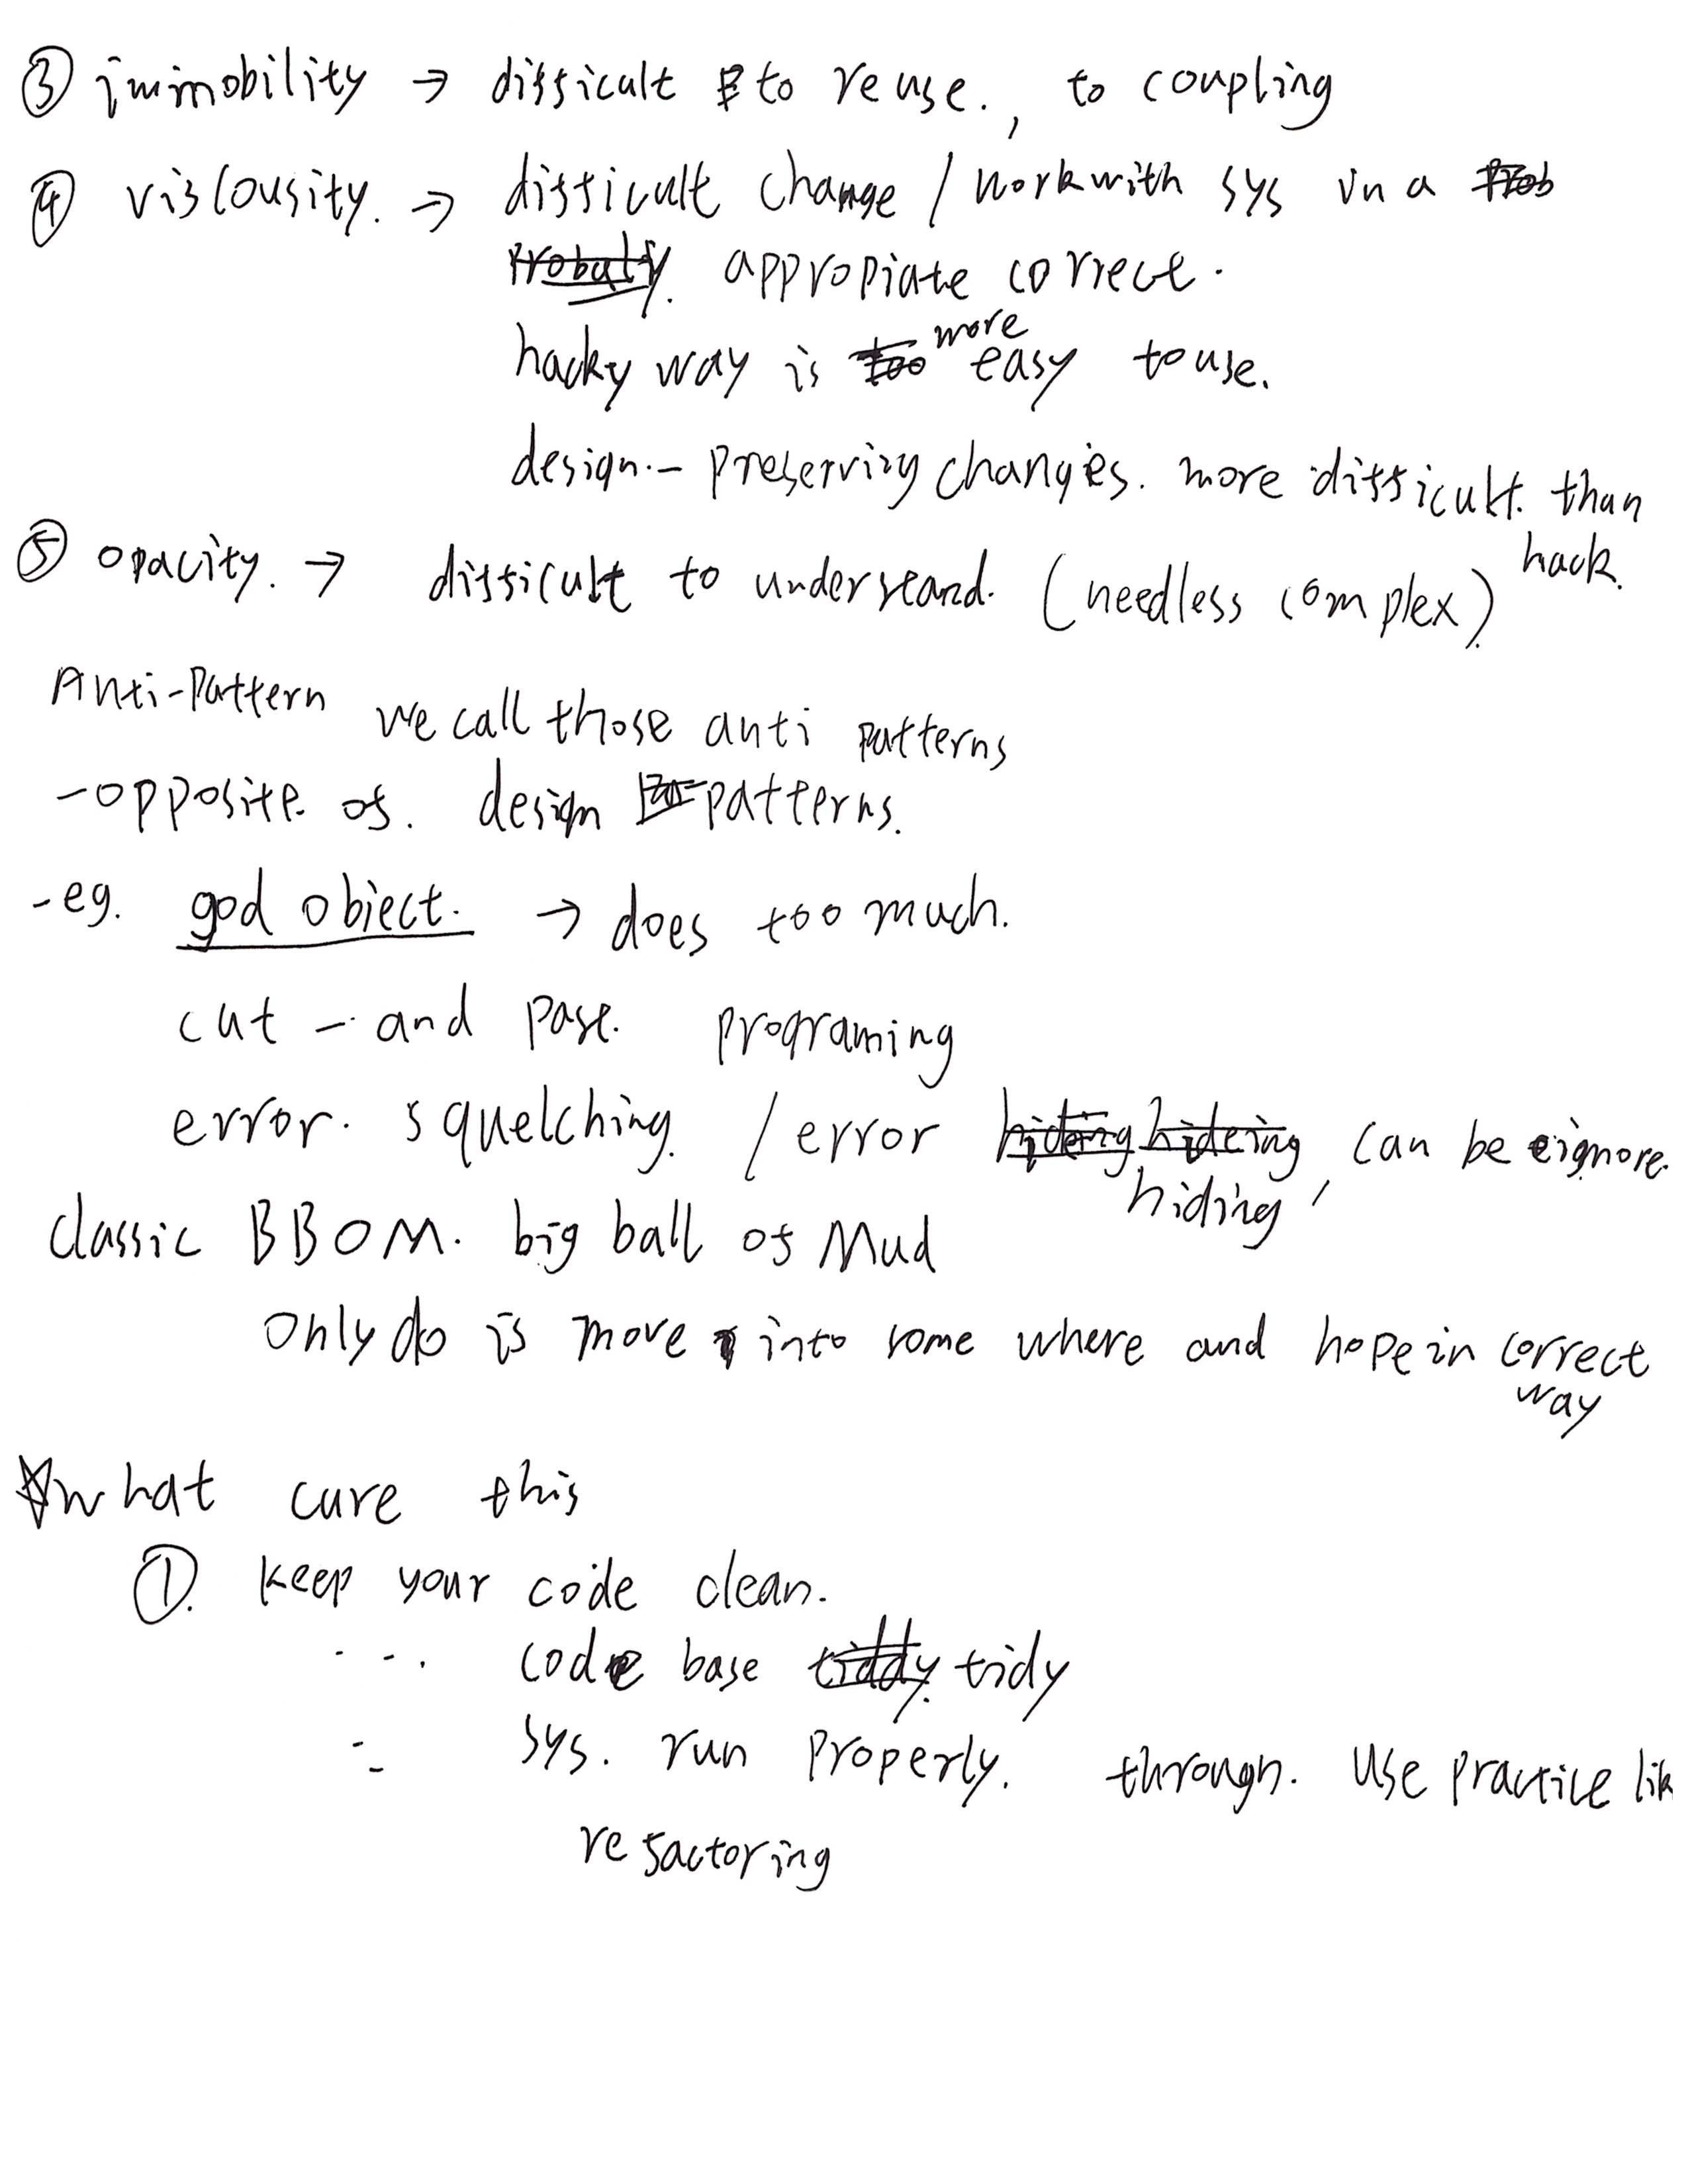 ③ immobility → difficult to reuse., to coupling
④ viscousity. → difficult change / work with sys in a
appropiate correct.
hacky way is more easy to use.
design - preserving changes. more difficult than
hack.
⑤ opacity. → difficult to understand. (needless complex)
Anti-Pattern we call those anti patterns
- opposite of. design patterns.
- eg. god object. → does too much.
cut - and past. programing
error. squelching. / error hiding, can be ignore.
Classic BBOM. big ball of Mud
Only do is move into some where and hope in correct
way
☆ what cure this
①. keep your code clean.
- - . code base tidy
- - sys. run properly. through. Use practice lik
refactoring